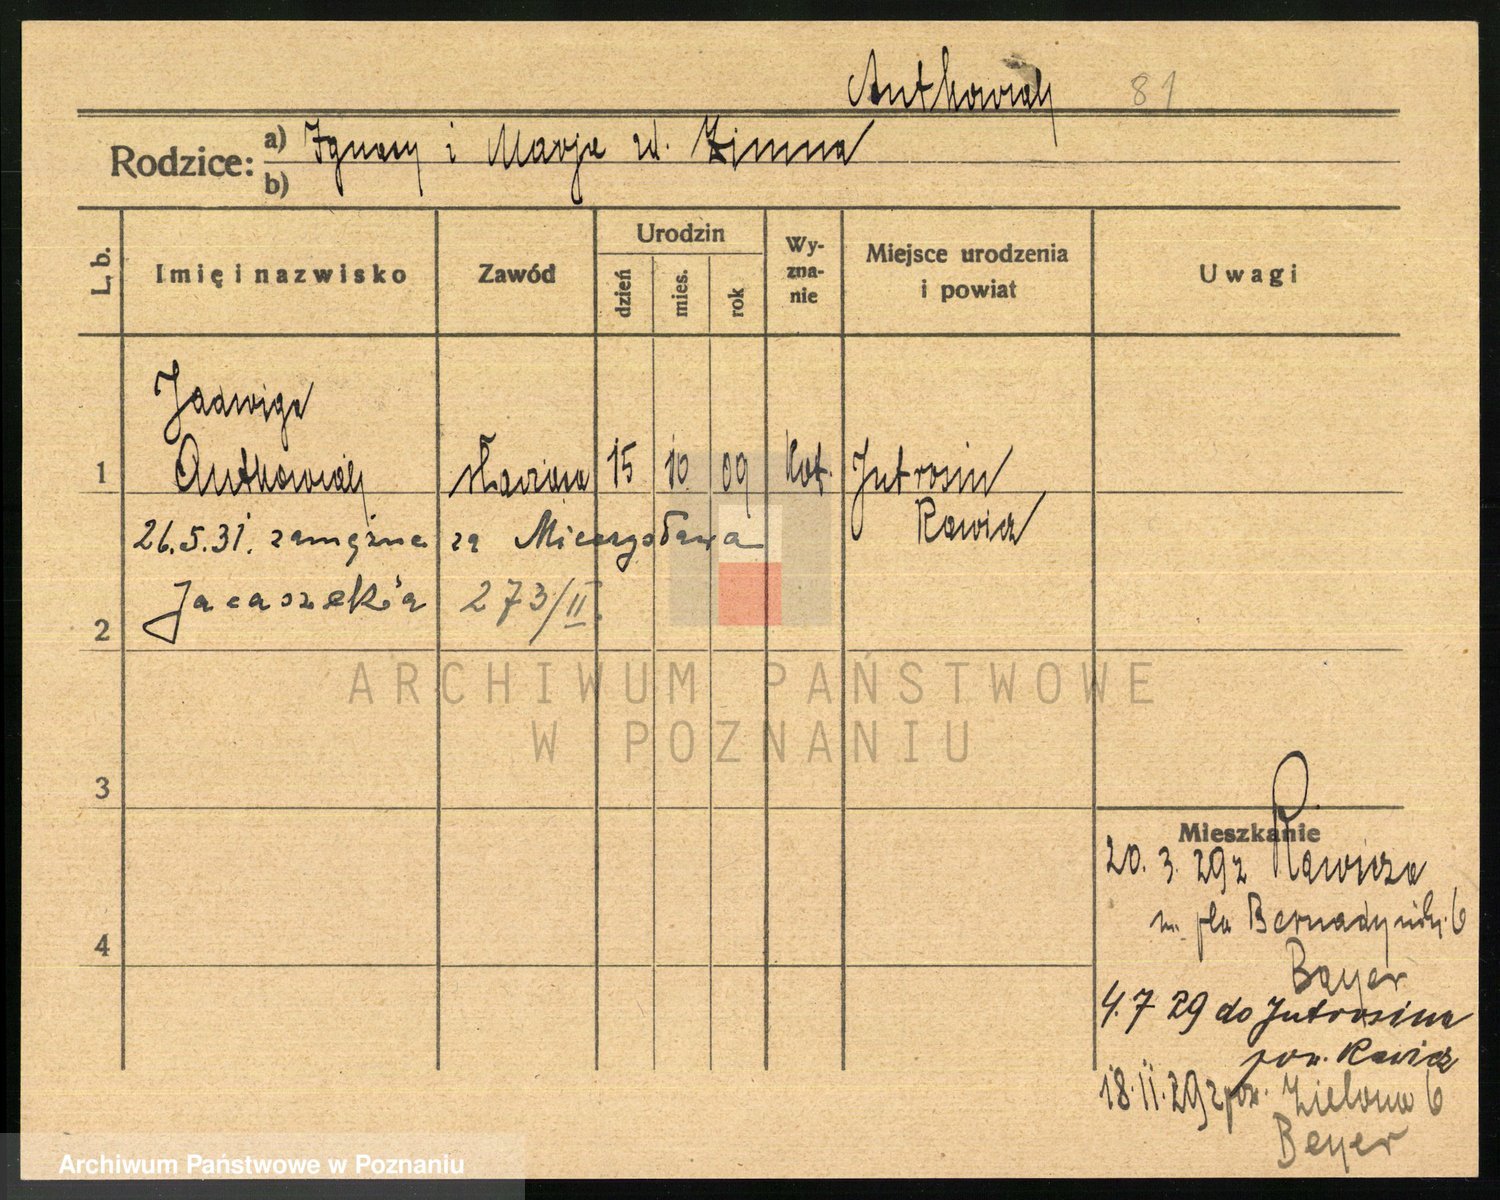 Antkowiak 81
Rodzice: a) Ignacy i Marja zd. Zimna
b)
L. b.
Imię i nazwisko
Zawód
Urodzin
dzień
mies.
rok
Wy-
zna-
nie
Miejsce urodzenia
i powiat
Uwagi
Jadwiga
1 Antkowiak służąca 15 10 09 kat. Jutrosin
Rawicz
26.5.31. zamężna za Mieczysława
Jacaszeka 273/II.
2
3
4
Mieszkanie
20. 3. 29 z Rawicza
pla Bernadyński 6
Beyer
4.7 29 do Jutrosina
pow. Rawicz
18.11.29 z pow. Zielona 6
Beyer
ARCHIWUM PAŃSTWOWE
W POZNANIU
Archiwum Państwowe w Poznaniu